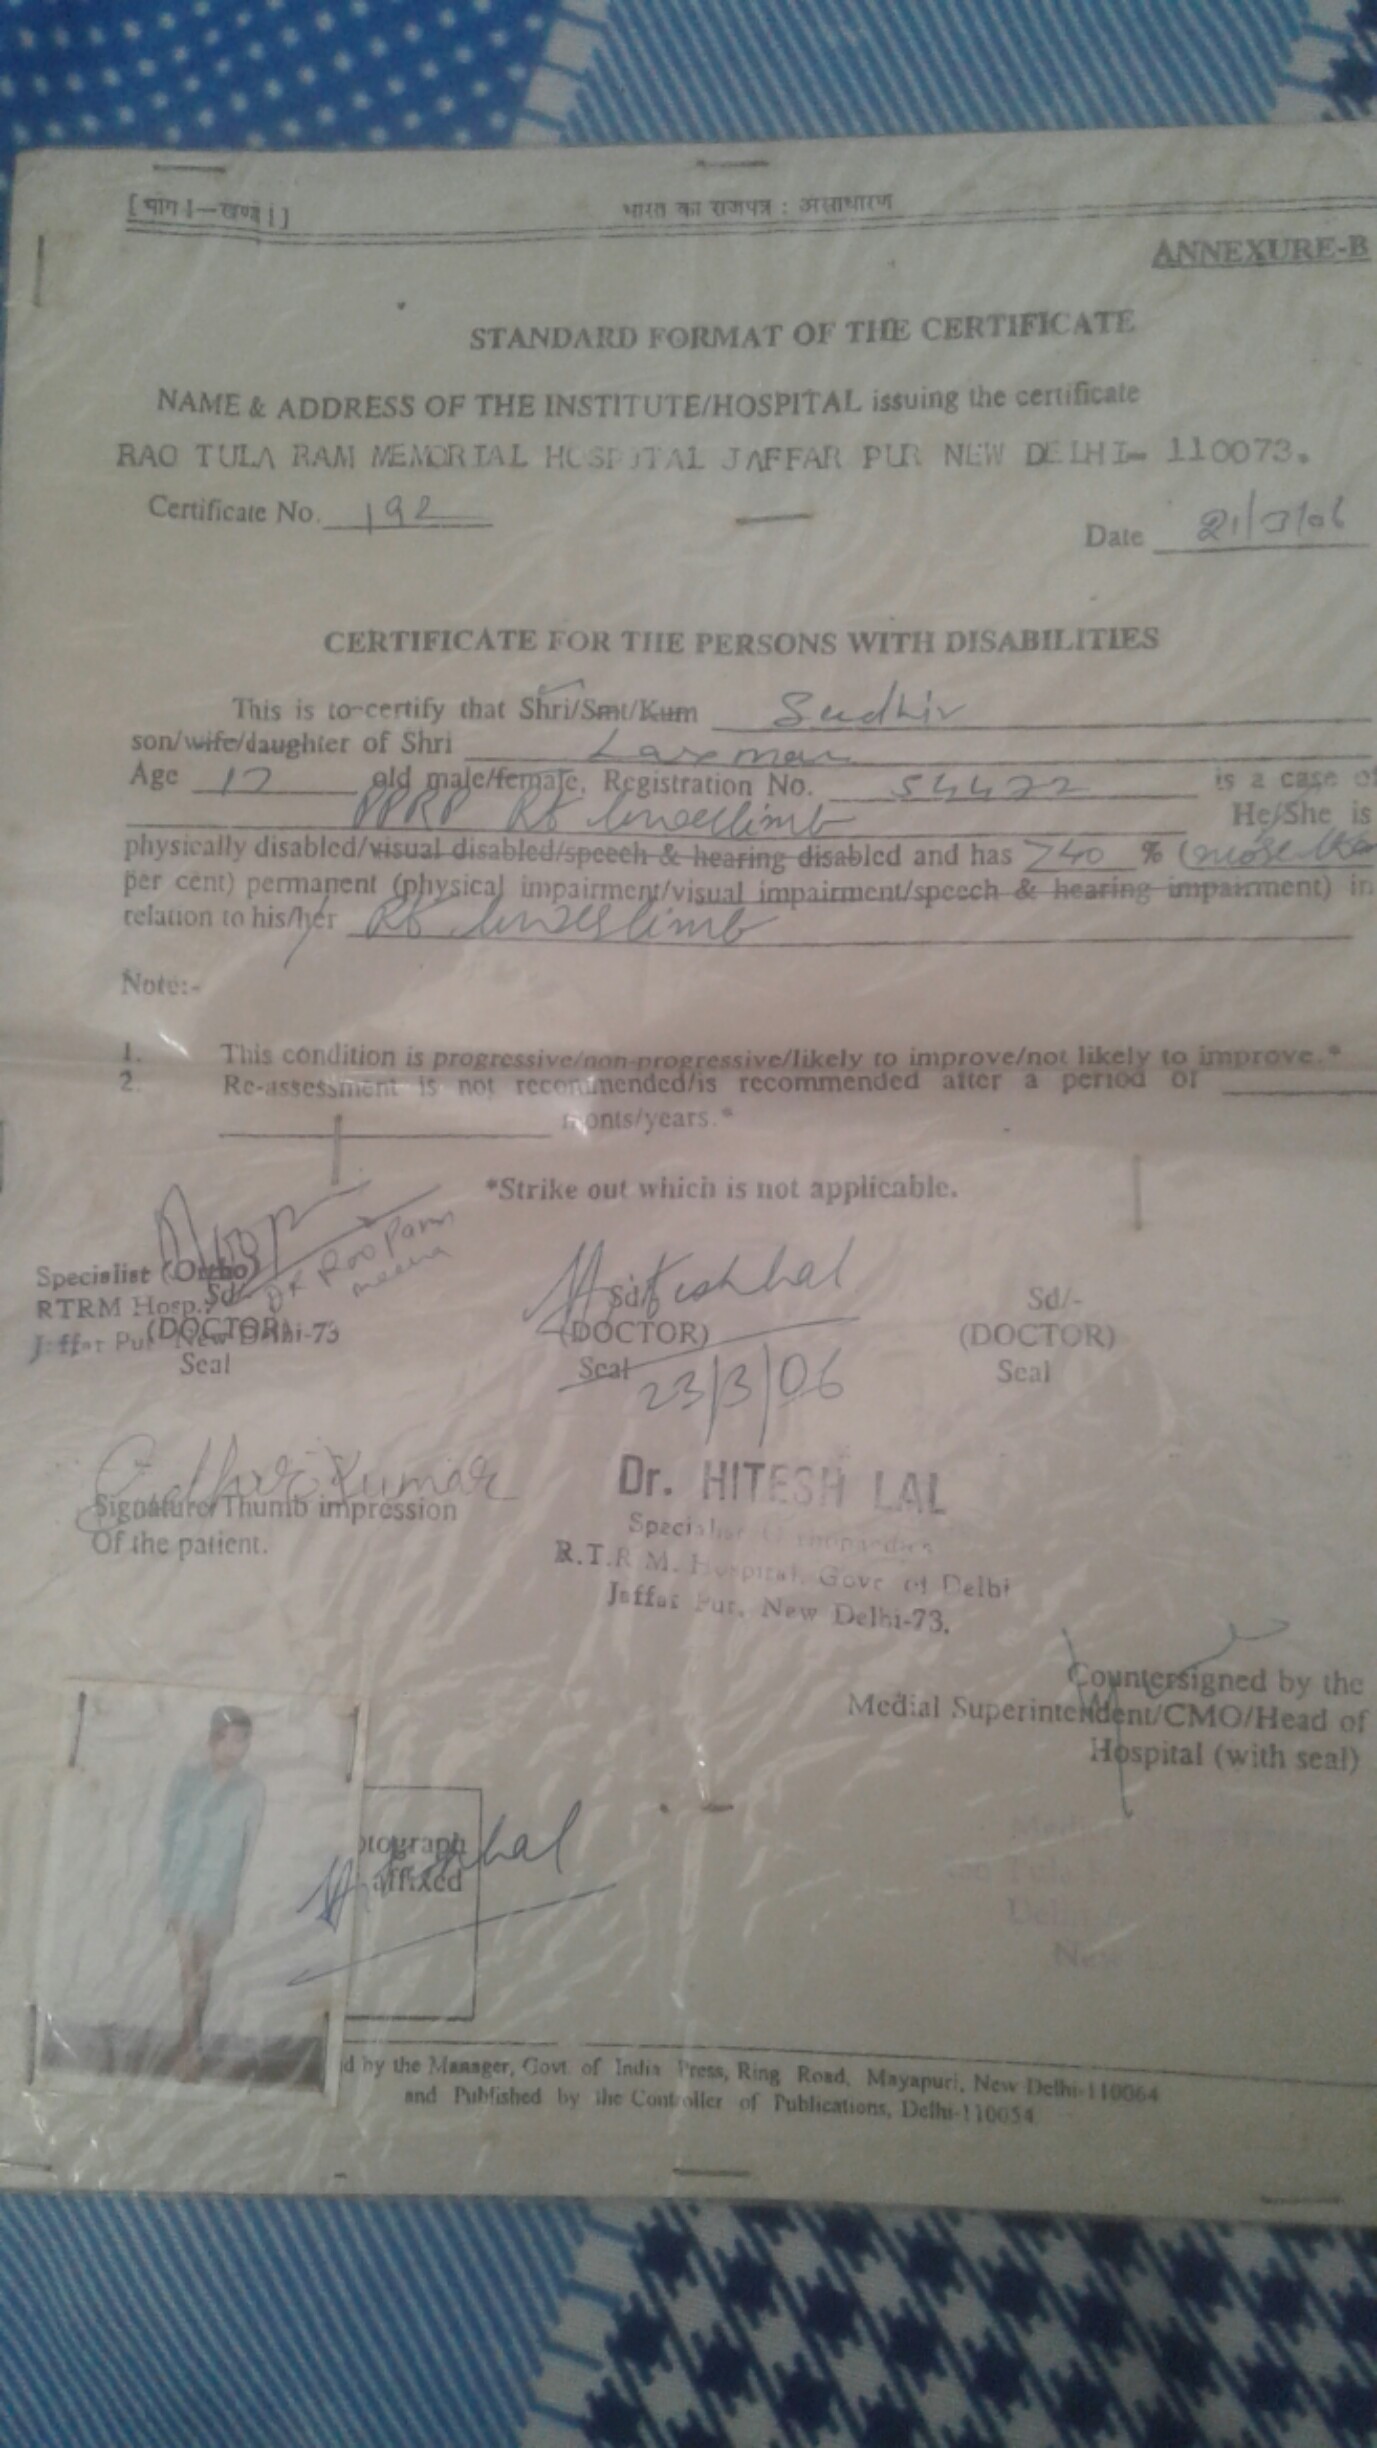 [ भाग I—खण्ड I ] भारत का राजपत्र : असाधारण
ANNEXURE-B
STANDARD FORMAT OF THE CERTIFICATE
NAME & ADDRESS OF THE INSTITUTE/HOSPITAL issuing the certificate
RAO TULA RAM MEMORIAL HOSPITAL JAFFAR PUR NEW DELHI- 110073.
Certificate No. 192
Date 21/3/06
CERTIFICATE FOR THE PERSONS WITH DISABILITIES
This is to certify that Shri/Smt/Kum Sudhir
son/wife/daughter of Shri Laxman
Age 17 old male/female, Registration No. 54422 is a case of
PPRP Rt lower limb He/She is
physically disabled/visual disabled/speech & hearing disabled and has >40 % (more than
per cent) permanent (physical impairment/visual impairment/speech & hearing impairment) in
relation to his/her Rt lower limb
Note:-
1. This condition is progressive/non-progressive/likely to improve/not likely to improve.*
2. Re-assessment is not recommended/is recommended after a period of
monts/years.*
*Strike out which is not applicable.
Dr Roo Param
meena
Specialist (Ortho)
RTRM Hosp.
Jaffar Pur New Delhi-73
Sd/-
(DOCTOR)
Seal
Hitesh Lal
Sd/-
(DOCTOR)
Seal
23/3/06
Sd/-
(DOCTOR)
Seal
Sudhir Kumar
Signature/Thumb impression
Of the patient.
Dr. HITESH LAL
Specialist Orthopaedics
R.T.R.M. Hospital, Govt of Delhi
Jaffar Pur, New Delhi-73.
Countersigned by the
Medial Superintendent/CMO/Head of
Hospital (with seal)
otograph
affixed
Hitesh Lal
d by the Manager, Govt. of India Press, Ring Road, Mayapuri, New Delhi-110064
and Published by the Controller of Publications, Delhi-110054